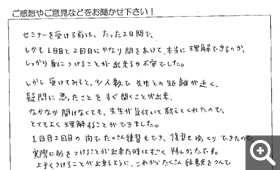 ご感想やご意見などをお聞かせ下さい!
セミナーを受ける前は、たった2日間で、
しかも1日目と2日目にかなり間をあけて、本当に理解できるのか、
しっかり身につけることが出来るか不安でした。
しかし受けてみると、少人数で先生との距離が近く、
疑問に思ったことをすぐ聞くことが出来、
なかなか聞けなくても、先生が気付いて教えてくれたので、
とてもよく理解することができました。
1日目と2日目の間でたくさん練習もでき、復習もゆっくりできたため、
実際に身をつけることが出来た時はすごく嬉しかったです。
上手くつけることが出来るように、これからたくさん経験をつんで